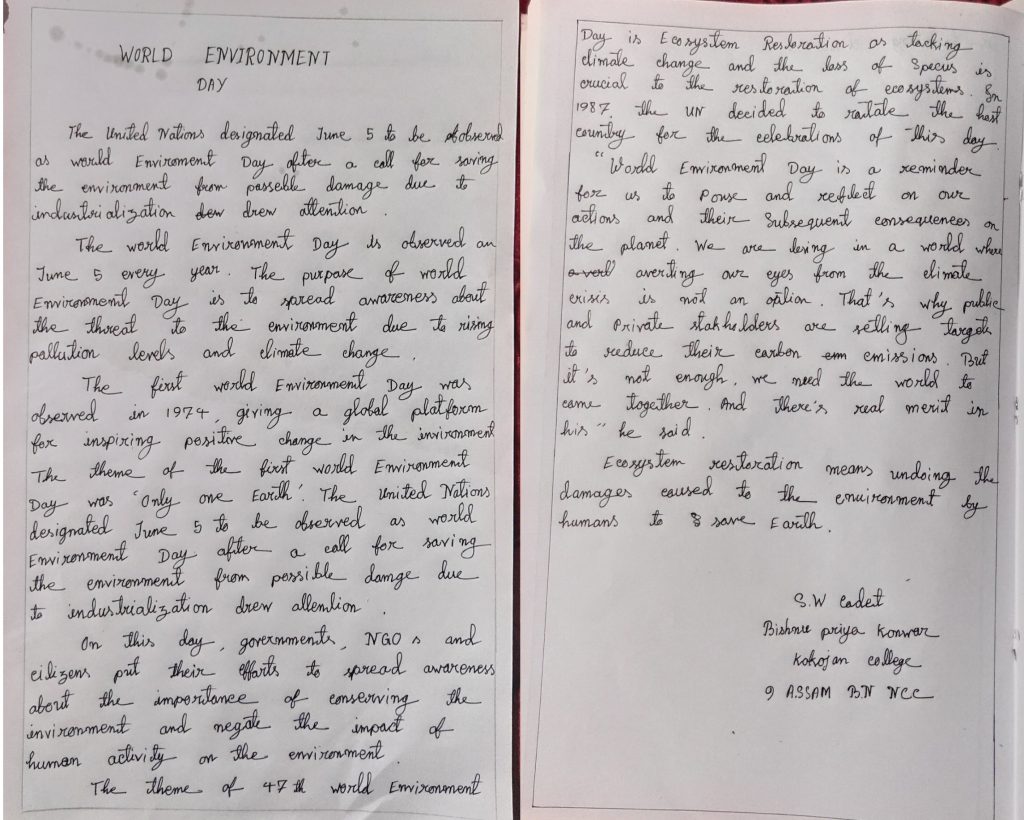 WORLD ENVIRONMENT
DAY
The United Nations designated June 5 to be observed
as world Enviroment Day after a call for saving
the environment from posselble damage due to
industrialization dew drew attention.
The world Environment Day is observed on
June 5 every year. The purpose of world
Environment Day is to spread awareness about
the threat to the environment due to rising
pollution levels and climate change.
The first world Environment Day was
observed in 1974, giving a global platform
for inspiring positive change in the invironment
The theme of the first world Environment
Day was 'Only one Earth'. The United Nations
designated June 5 to be observed as world
Environment Day after a call for saving
the environment from possible damge due
to industrialization drew allention.
On this day, governments, NGO s and
citizens put their efforts to spread awareness
about the importance of conserving the
invironment and negate the impact of
human activity on the environment
The theme of 47 th world Environment
Day is Ecosystem Restoration as tacking
climate change and the loss of Specus is
crucial to the restoration of ecosystems. In
1987, the UN decided to raitate the host
country for the celebrations of this day.
"World Environment Day is a reminder
for us to Pouse and reflect on our
actions and their Subsequent consequences on
the planet. We are leving in a world where
a verl averting our eyes from the climate
crisis is not an option. That's why public
and Private stakholders are setling targets
to reduce their carbon em emissions. But
it's not enough. we need the world to
come together. And there's real merit in
his" he said.
Ecosystem restoration means undoing the
damages caused to the enuironment by
humans to S save Earth.
S.W Cadet
Bishnu priya Konwar
Kokojan college
9 ASSAM BN NCC